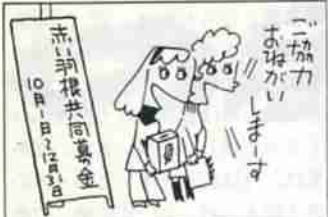 ご協力
おねがい
しまーす
赤い羽根共同募金
10月1日〜12月31日